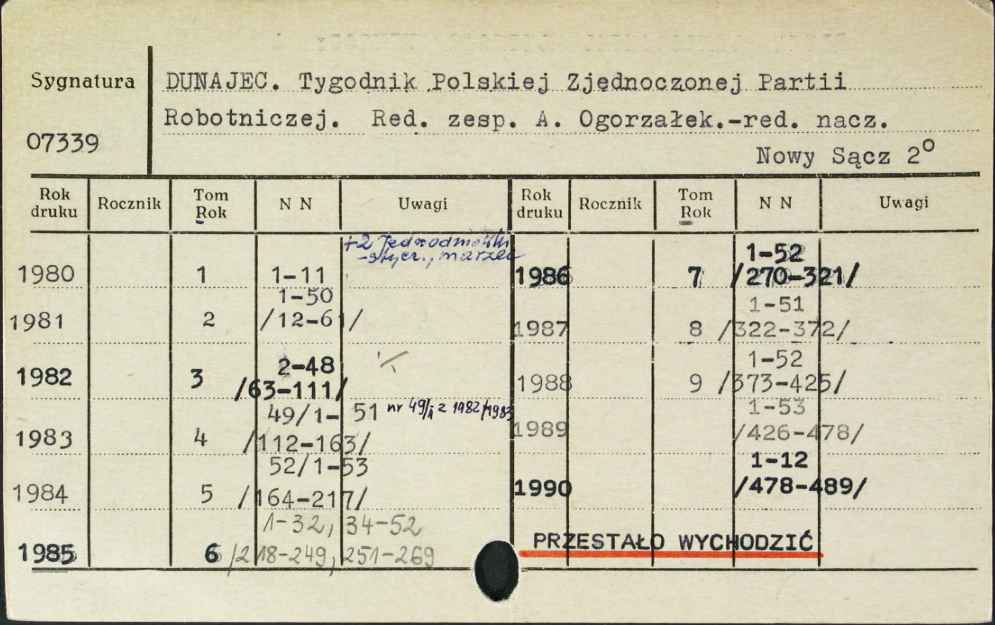 Sygnatura
07339
DUNAJEC. Tygodnik Polskiej Zjednoczonej Partii
Robotniczej. Red. zesp. A. Ogorzałek.-red. nacz.
Nowy Sącz 2°
Rok druku Rocznik Tom Rok N N Uwagi Rok druku Rocznik Tom Rok N N Uwagi
+2 jednodniówki
-stycz., marzec
1980 1 1-11
1-50
1981 2 /12-61/
2-48
1982 3 /63-111/
49/1-51 nr 49/1 z 1982/1983
1983 4 /112-163/
52/1-53
1984 5 /164-217/
1-32, 34-52
1985 6 /218-249, 251-269
1-52
1986 7 /270-321/
1-51
1987 8 /322-372/
1-52
1988 9 /373-425/
1-53
1989 /426-478/
1-12
1990 /478-489/
PRZESTAŁO WYCHODZIĆ